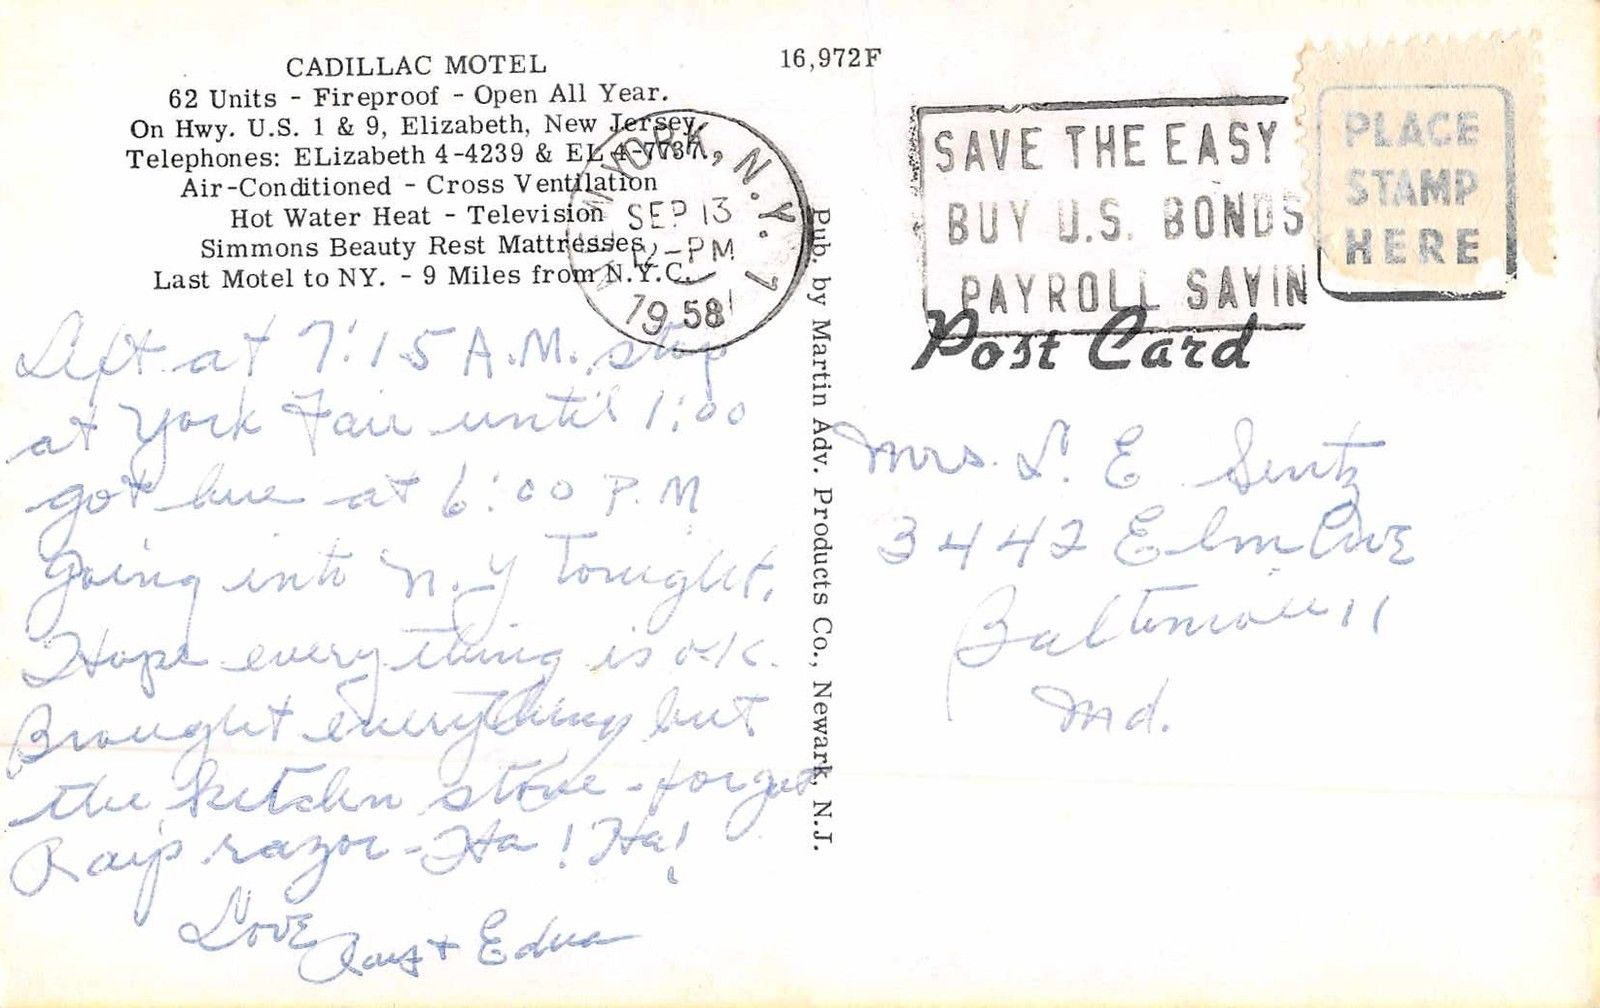 CADILLAC MOTEL
62 Units - Fireproof - Open All Year.
On Hwy. U.S. 1 & 9, Elizabeth, New Jersey.
Telephones: ELizabeth 4-4239 & EL 4-7737.
Air-Conditioned - Cross Ventilation
Hot Water Heat - Television
Simmons Beauty Rest Mattresses
Last Motel to NY. - 9 Miles from N.Y.C.
16,972F
YORK, N.Y. 1
SEP 13
12-PM
1958
SAVE THE EASY
BUY U.S. BONDS
PAYROLL SAVIN
PLACE
STAMP
HERE
Post Card
Left at 7:15 A.M. stop
at York Fair until 1:00
got here at 6:00 P.M
Going into N.Y Tonight.
Hope everything is o.k.
Brought everything but
the kitchen stove - forget
Ray's razor - Ha! Ha!
Love
Ray + Edna
Pub. by Martin Adv. Products Co., Newark, N.J.
Mrs. L. E Sentz
3442 Elm Ave
Baltimore 11
Md.